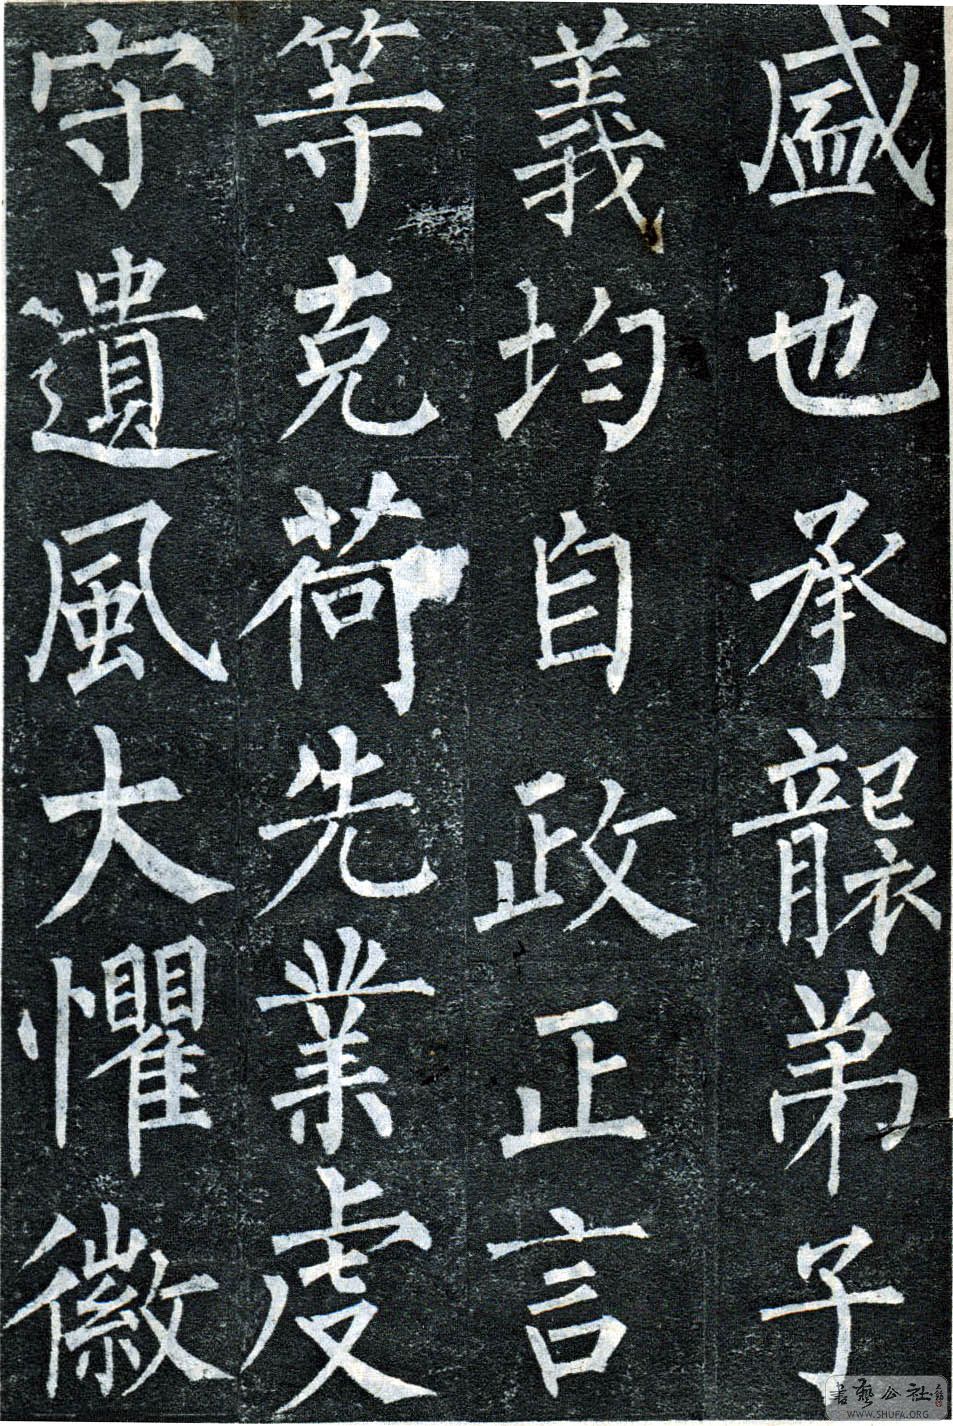 盛也承襲弟子
義均自政正言
等克荷先業虔
守遺風大懼徽
書藝公社
WWW.SHUFA.ORG